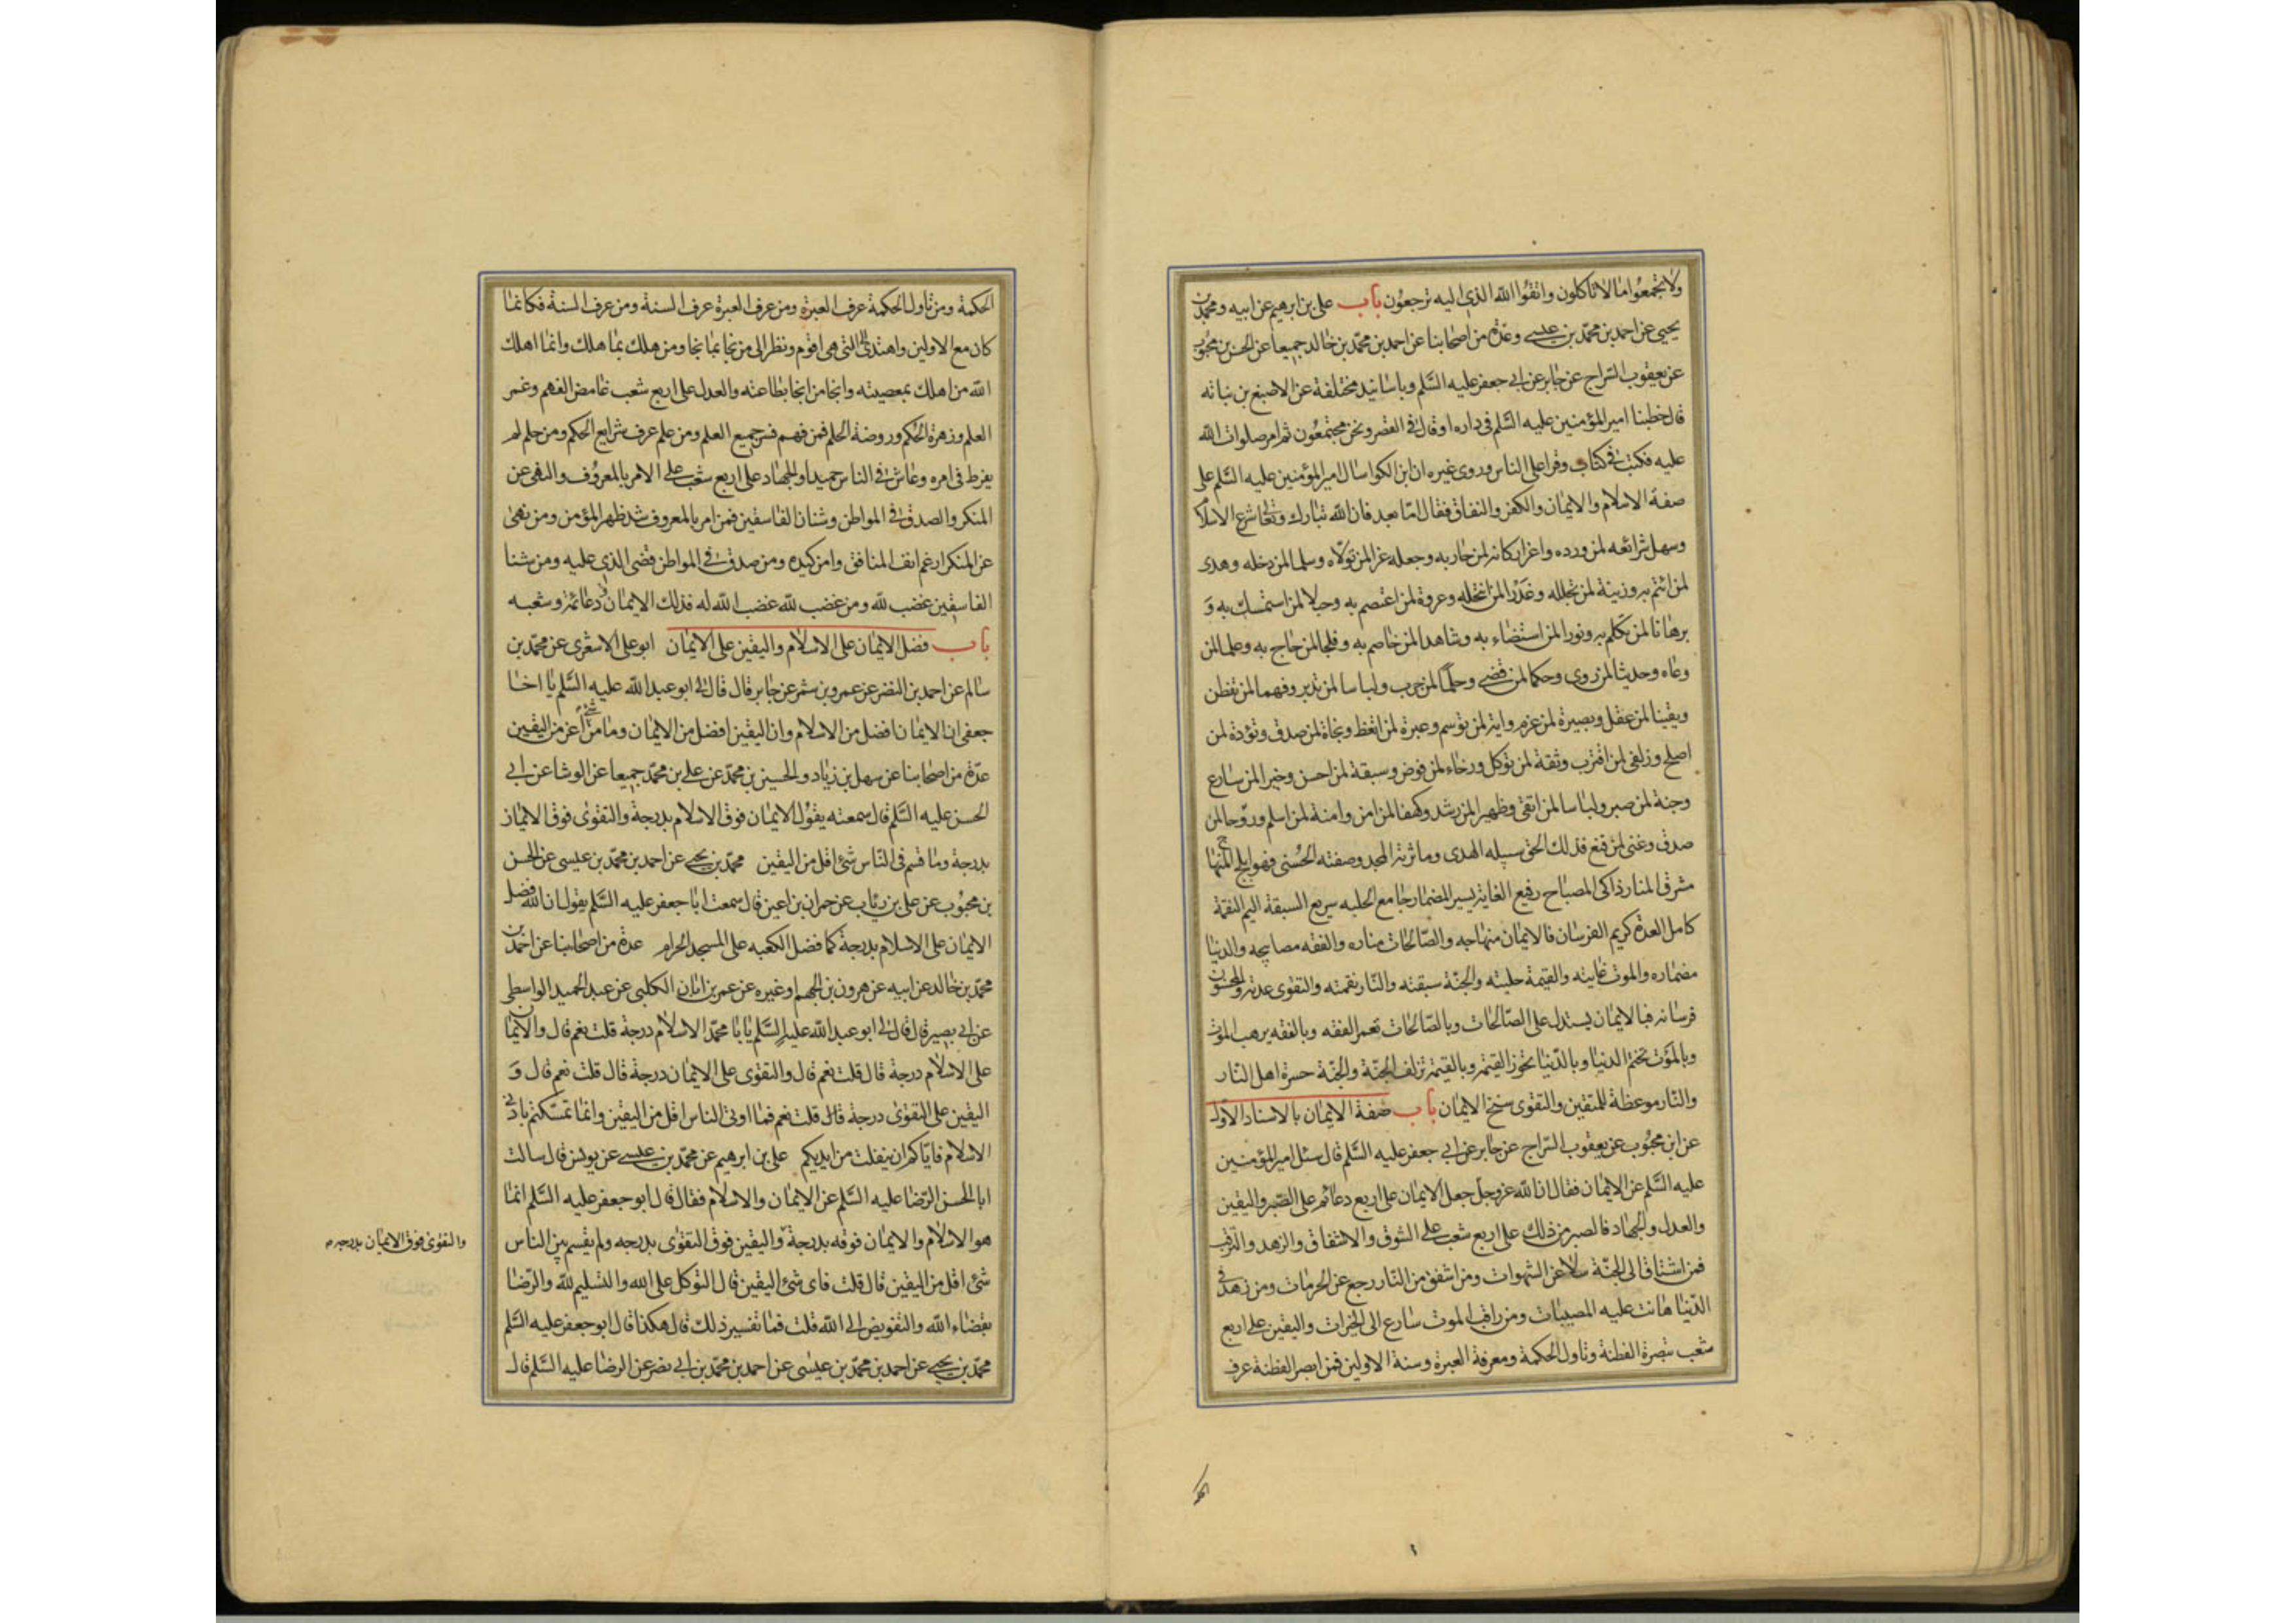 ولا تجمعوا ما لا تاكلون واتقوا الله الذي اليه ترجعون باب علي بن ابرهيم عن ابيه ومحمد بن
يحيى عن احمد بن محمد بن عيسى وعدة من اصحابنا عن احمد بن محمد بن خالد جميعا عن الحسن بن محبوب
عن يعقوب السراج عن جابر عن ابي جعفر عليه السلم وباسانيد مختلفة عن الاصبغ بن نباته
قال خطبنا امير المؤمنين عليه السلم في داره او قال في القصر ونحن مجتمعون ثم امر صلوات الله
عليه فكتب في كتاب وقرا على الناس وروى غيره ان ابن الكوا سال امير المؤمنين عليه السلم على
صفة الاسلام والايمان والكفر والنفاق فقال اما بعد فان الله تبارك وتعالى شرع الاسلام
وسهل شرائعه لمن ورده واعز اركانه لمن حاربه وجعله عزا لمن تولاه وسلما لمن دخله وهدى
لمن ائتم به وزينة لمن تجلله وعذرا لمن انتحله وعروة لمن اعتصم به وحبلا لمن استمسك به و
برهانا لمن تكلم به ونورا لمن استضاء به وشاهدا لمن خاصم به وفلجا لمن حاج به وعلما لمن
وعاه وحديثا لمن روى وحكما لمن قضى وحلما لمن جرب ولباسا لمن تدبر وفهما لمن تفطن
ويقينا لمن عقل وبصيرة لمن عزم واية لمن توسم وعبرة لمن اتعظ ونجاة لمن صدق وتؤدة لمن
اصلح وزلفى لمن اقترب وثقة لمن توكل ورخاء لمن فوض وسبقة لمن احسن وخيرا لمن سارع
وجنة لمن صبر ولباسا لمن اتقى وظهيرا لمن رشد وكهفا لمن امن وامنة لمن اسلم وروحا لمن
صدق وغنى لمن قنع فذلك الحق سبيله الهدى وماثرته المجد وصفته الحسنى فهو ابلج المنهاج
مشرق المنار ذاكي المصباح رفيع الغاية يسير المضمار جامع الحلبه سريع السبقة اليم النقمة
كامل العدة كريم الفرسان فالايمان منهاجه والصالحات مناره والفقه مصابيحه والدنيا
مضماره والموت غايته والقيمة حلبته والجنة سبقته والنار نقمته والتقوى عدته والمحسنون
فرسانه فبالايمان يستدل على الصالحات وبالصالحات تعمر الفقه وبالفقه يرهب الموت
وبالموت تختم الدنيا وبالدنيا تجوز القيمة وبالقيمة تزلف الجنة والجنة حسرة اهل النار
والنار موعظة للمتقين والتقوى سنخ الايمان باب صفة الايمان بالاسناد الاول
عن ابن محبوب عن يعقوب السراج عن جابر عن ابي جعفر عليه السلم قال سئل امير المؤمنين
عليه السلم عن الايمان فقال ان الله عز وجل جعل الايمان على اربع دعائم على الصبر واليقين
والعدل والجهاد فالصبر من ذلك على اربع شعب على الشوق والاشفاق والزهد والترقب
فمن اشتاق الى الجنة سلا عن الشهوات ومن اشفق من النار رجع عن الحرمات ومن زهد في
الدنيا هانت عليه المصيبات ومن راقب الموت سارع الى الخيرات واليقين على اربع
شعب تبصرة الفطنة وتاول الحكمة ومعرفة العبرة وسنة الاولين فمن ابصر الفطنة عرف
الحكمة ومن تاول الحكمة عرف العبرة ومن عرف العبرة عرف السنة ومن عرف السنة فكانما
كان مع الاولين واهتدى الى التي هي اقوم ونظر الى من نجا بما نجا ومن هلك بما هلك وانما اهلك
الله من اهلك بمعصيته وانجا من انجا بطاعته والعدل على اربع شعب غامض الفهم وغمر
العلم وزهرة الحكم وروضة الحلم فمن فهم فسر جميع العلم ومن علم عرف شرايع الحكم ومن حلم لم
يفرط في امره وعاش في الناس حميدا والجهاد على اربع شعب على الامر بالمعروف والنهي عن
المنكر والصدق في المواطن وشنان الفاسقين فمن امر بالمعروف شد ظهر المؤمن ومن نهى
عن المنكر ارغم انف المنافق وامن كيده ومن صدق في المواطن قضى الذي عليه ومن شنا
الفاسقين غضب لله ومن غضب لله غضب الله له فذلك الايمان ودعائمه وشعبه
باب فضل الايمان على الاسلام واليقين على الايمان ابو على الاشعري عن محمد بن
سالم عن احمد بن النضر عن عمرو بن شمر عن جابر قال قال لي ابو عبد الله عليه السلم يا اخا
جعفي ان الايمان افضل من الاسلام وان اليقين افضل من الايمان وما من شئ اعز من اليقين
عدة من اصحابنا عن سهل بن زياد والحسين بن محمد عن على بن محمد جميعا عن الوشا عن ابي
الحسن عليه السلم قال سمعته يقول الايمان فوق الاسلام بدرجة والتقوى فوق الايمان
بدرجة وما قسم في الناس شئ اقل من اليقين محمد بن يحيى عن احمد بن محمد بن عيسى عن الحسن
بن محبوب عن على بن رئاب عن حمران بن اعين قال سمعت ابا جعفر عليه السلم يقول ان الله فضل
الايمان على الاسلام بدرجة كما فضل الكعبه على المسجد الحرام عدة من اصحابنا عن احمد بن
محمد بن خالد عن ابيه عن هرون بن الجهم او غيره عن عمر بن ابان الكلبي عن عبد الحميد الواسطي
عن ابي بصير قال قال لي ابو عبد الله عليه السلم يابا محمد الاسلام درجة قلت نعم قال والايمان
على الاسلام درجة قال قلت نعم قال والتقوى على الايمان درجة قال قلت نعم قال و
اليقين على التقوى درجة قال قلت نعم فما اوتى الناس اقل من اليقين وانما تمسكتم بادنى
الاسلام فاياكم ان ينفلت من ايديكم على بن ابرهيم عن محمد بن عيسى عن يونس قال سالت
ابا الحسن الرضا عليه السلم عن الايمان والاسلام فقال قال ابو جعفر عليه السلم انما
هو الاسلام والايمان فوقه بدرجة واليقين فوق التقوى بدرجه ولم يقسم بين الناس
والتقوى فوق الايمان بدرجه
شئ اقل من اليقين قال قلت فاى شئ اليقين قال التوكل على الله والتسليم لله والرضا
بقضاء الله والتفويض الى الله قلت فما تفسير ذلك قال هكذا قال ابو جعفر عليه السلم
محمد بن يحيى عن احمد بن محمد بن عيسى عن احمد بن محمد بن ابي نصر عن الرضا عليه السلم قال